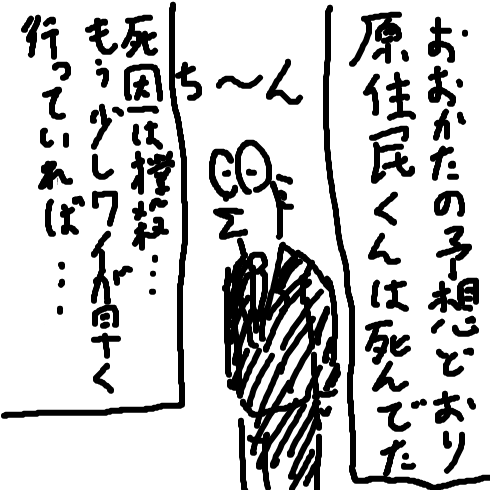 おおかたの予想どおり
原住民くんは死んでた
ち〜ん
死因は撲殺…
もう少しワイが早く
行っていれば……